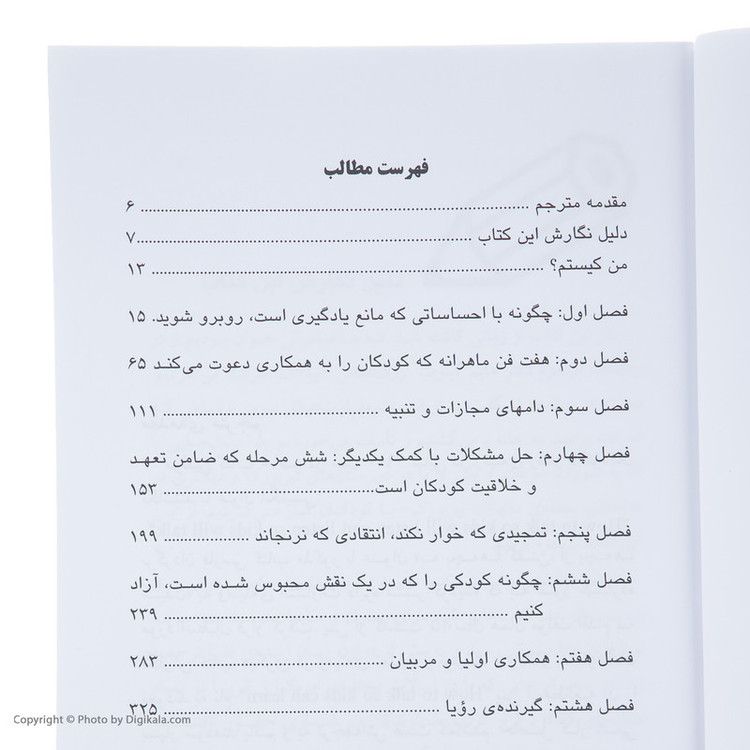 فهرست مطالب
مقدمه مترجم ................................................................ ۶
دلیل نگارش این کتاب ........................................................۷
من کیستم؟ ................................................................ ۱۳
فصل اول: چگونه با احساساتی که مانع یادگیری است، روبرو شوید. ۱۵
فصل دوم: هفت فن ماهرانه که کودکان را به همکاری دعوت می‌کند ۶۵
فصل سوم: دامهای مجازات و تنبیه ................................... ۱۱۱
فصل چهارم: حل مشکلات با کمک یکدیگر: شش مرحله که ضامن تعهد
و خلاقیت کودکان است................................... ۱۵۳
فصل پنجم: تمجیدی که خوار نکند، انتقادی که نرنجاند .............. ۱۹۹
فصل ششم: چگونه کودکی را که در یک نقش محبوس شده است، آزاد
کنیم ............................................................ ۲۳۹
فصل هفتم: همکاری اولیا و مربیان ................................... ۲۸۳
فصل هشتم: گیرنده‌ی رؤیا ............................................ ۳۲۵
Copyright © Photo by Digikala.com